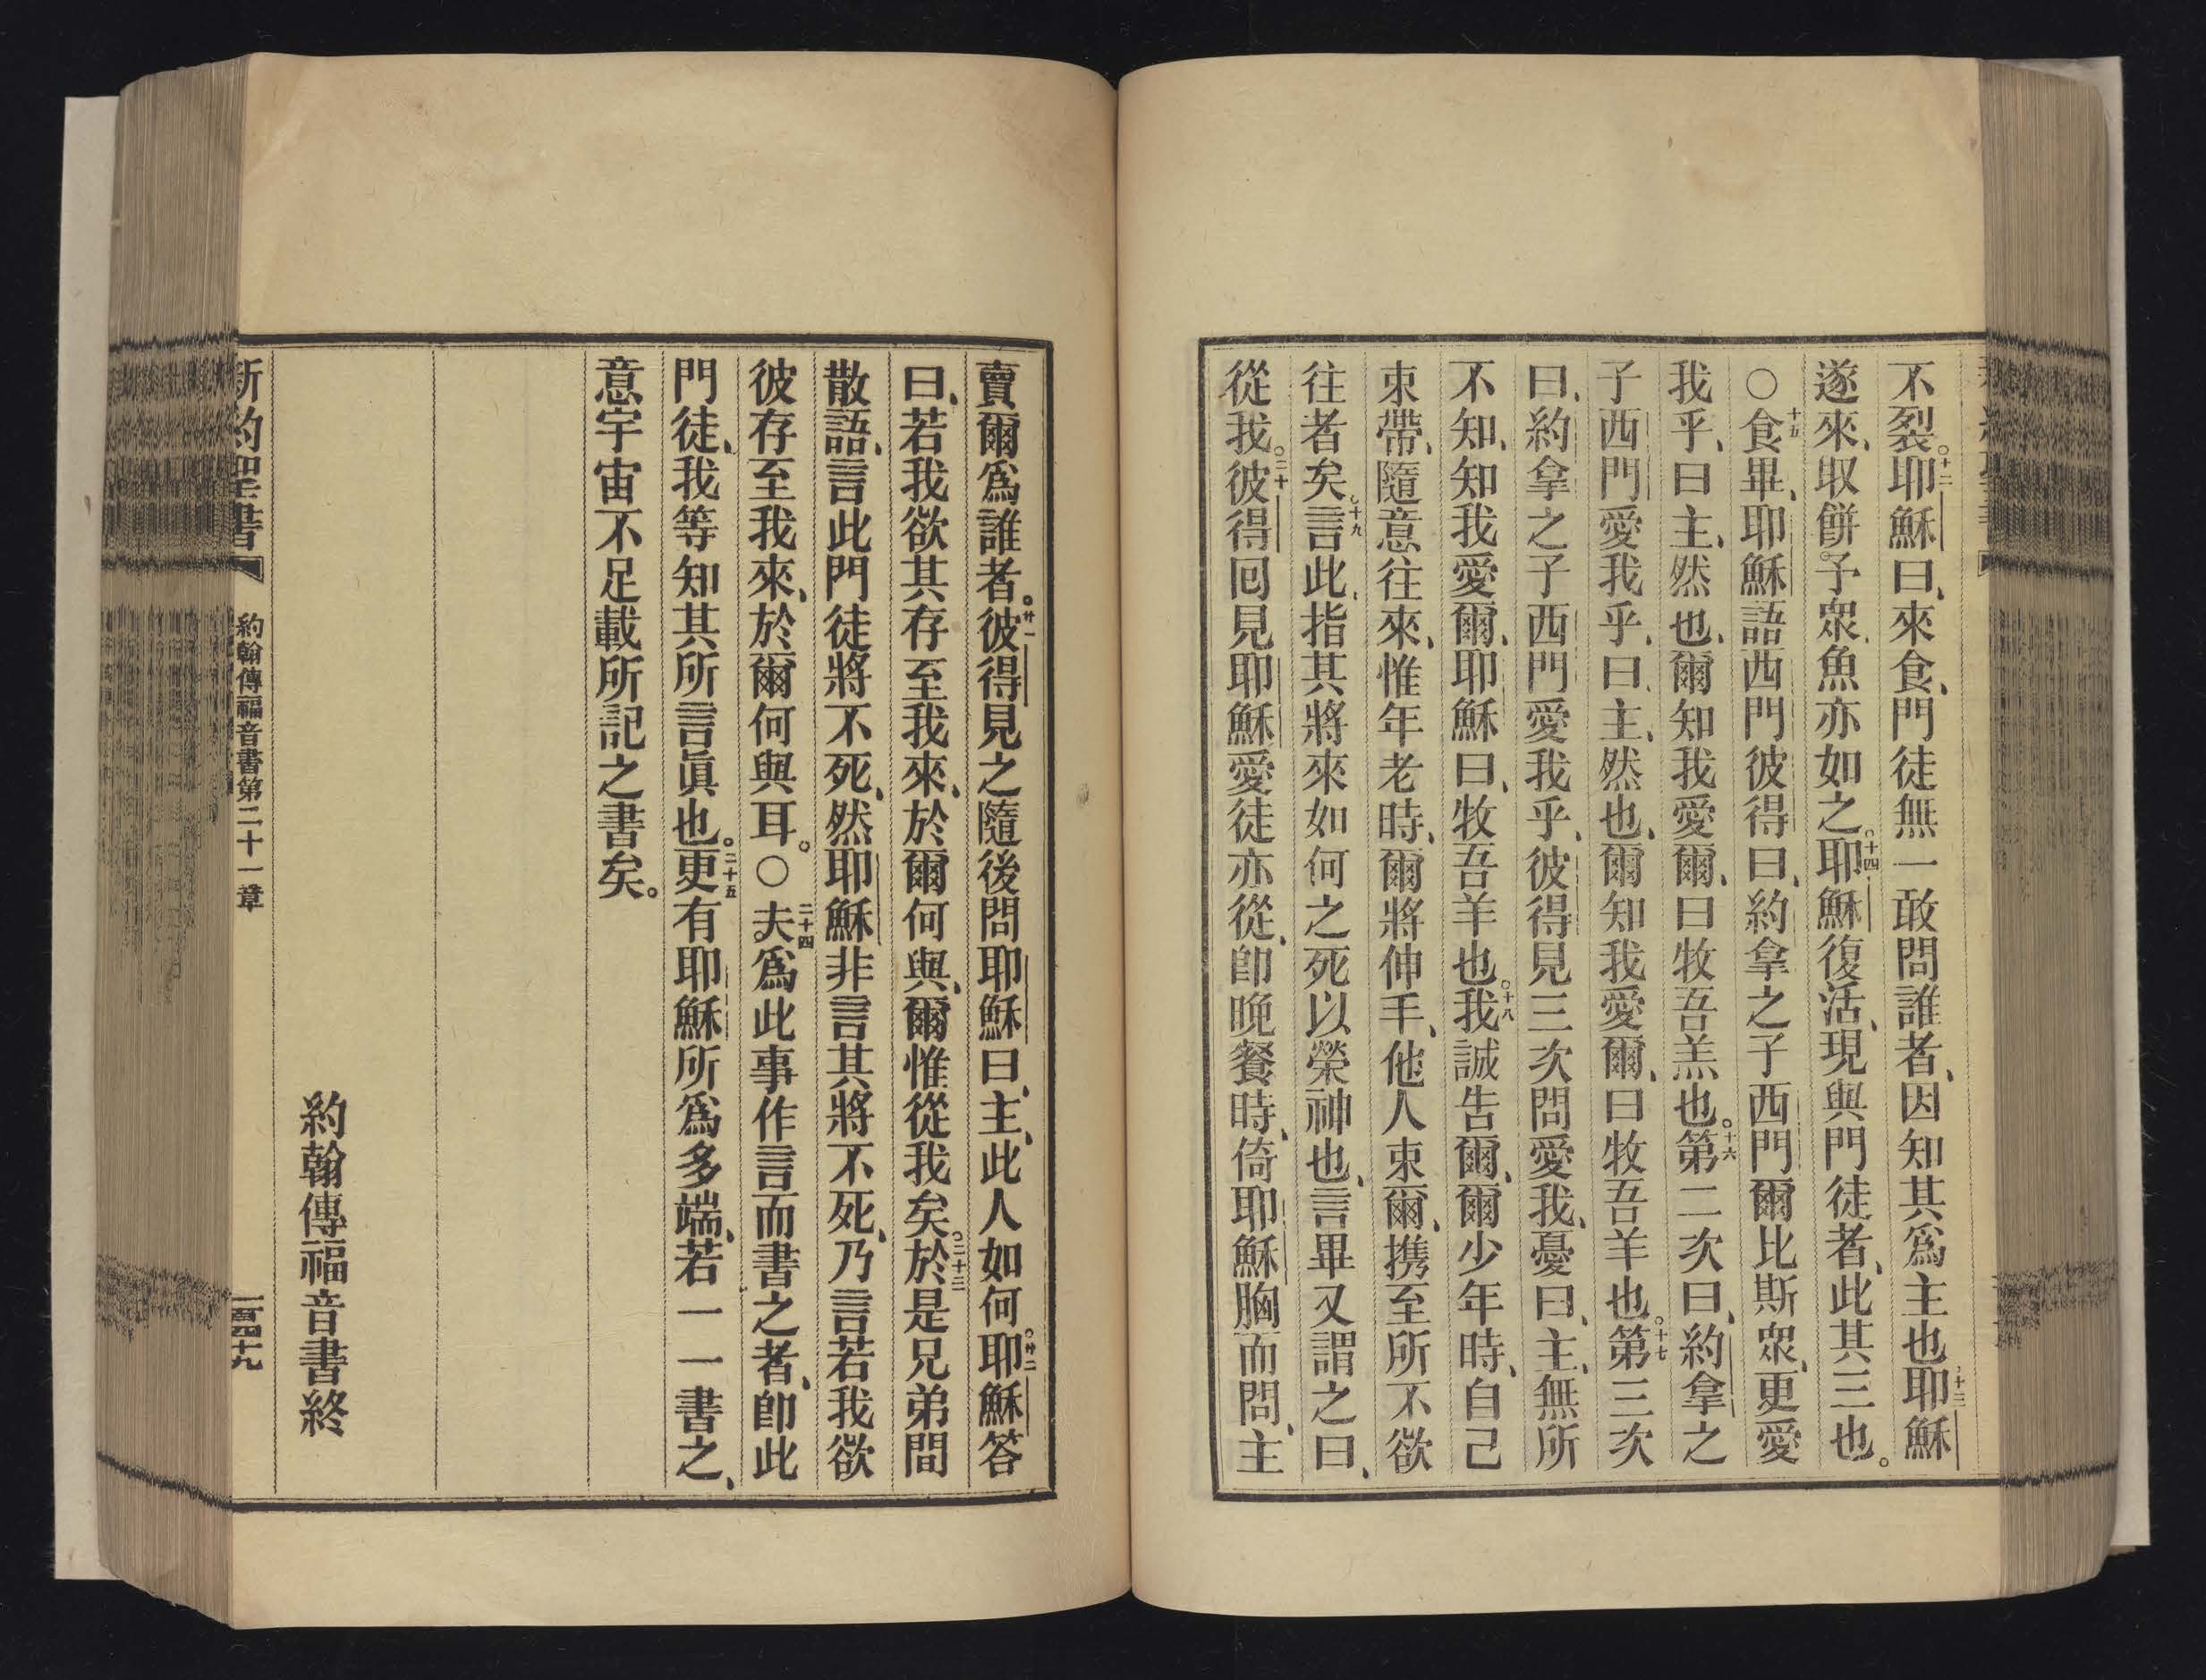 不裂。十二耶穌曰、來食、門徒無一敢問誰者、因知其爲主也、十三耶穌
遂來、取餅予衆、魚亦如之。十四耶穌復活、現與門徒者、此其三也。
○十五食畢、耶穌語西門彼得曰、約拿之子西門爾比斯衆、更愛
我乎、曰主、然也、爾知我愛爾、曰牧吾羔也。十六第二次曰、約拿之
子西門愛我乎、曰、主、然也、爾知我愛爾、曰牧吾羊也。十七第三次
曰、約拿之子西門愛我乎、彼得見三次問愛我、憂曰、主、無所
不知、知我愛爾、耶穌曰、牧吾羊也。十八我誠告爾、爾少年時、自己
束帶、隨意往來、惟年老時、爾將伸手、他人束爾、携至所不欲
往者矣、十九言此、指其將來如何之死以榮神也、言畢又謂之曰、
從我。二十彼得回見耶穌愛徒亦從、卽晚餐時、倚耶穌胸而問、主
賣爾爲誰者。廿一彼得見之隨後問耶穌曰、主、此人如何。廿二耶穌答
曰、若我欲其存至我來、於爾何與、爾惟從我矣。二十三於是兄弟間
散語、言此門徒將不死、然耶穌非言其將不死、乃言若我欲
彼存至我來、於爾何與耳。○二十四夫爲此事作言而書之者、卽此
門徒、我等知其所言眞也。二十五更有耶穌所爲多端、若一一書之、
意宇宙不足載所記之書矣。
約翰傳福音書終
新約聖書
約翰傳福音書第二十一章
一百四十九